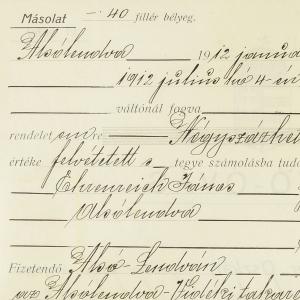 Másolat — 40 fillér bélyeg.
Alsólendva 1912 január
1912 július hó 4-én
váltónál fogva
rendelet em re Négyszázhet
értéke felvétetett s tegye számolásba tud
Ehrenreich János
Alsólendva
Fizetendő Alsó-Lendván
az Alsólendva-Vidéki takaré